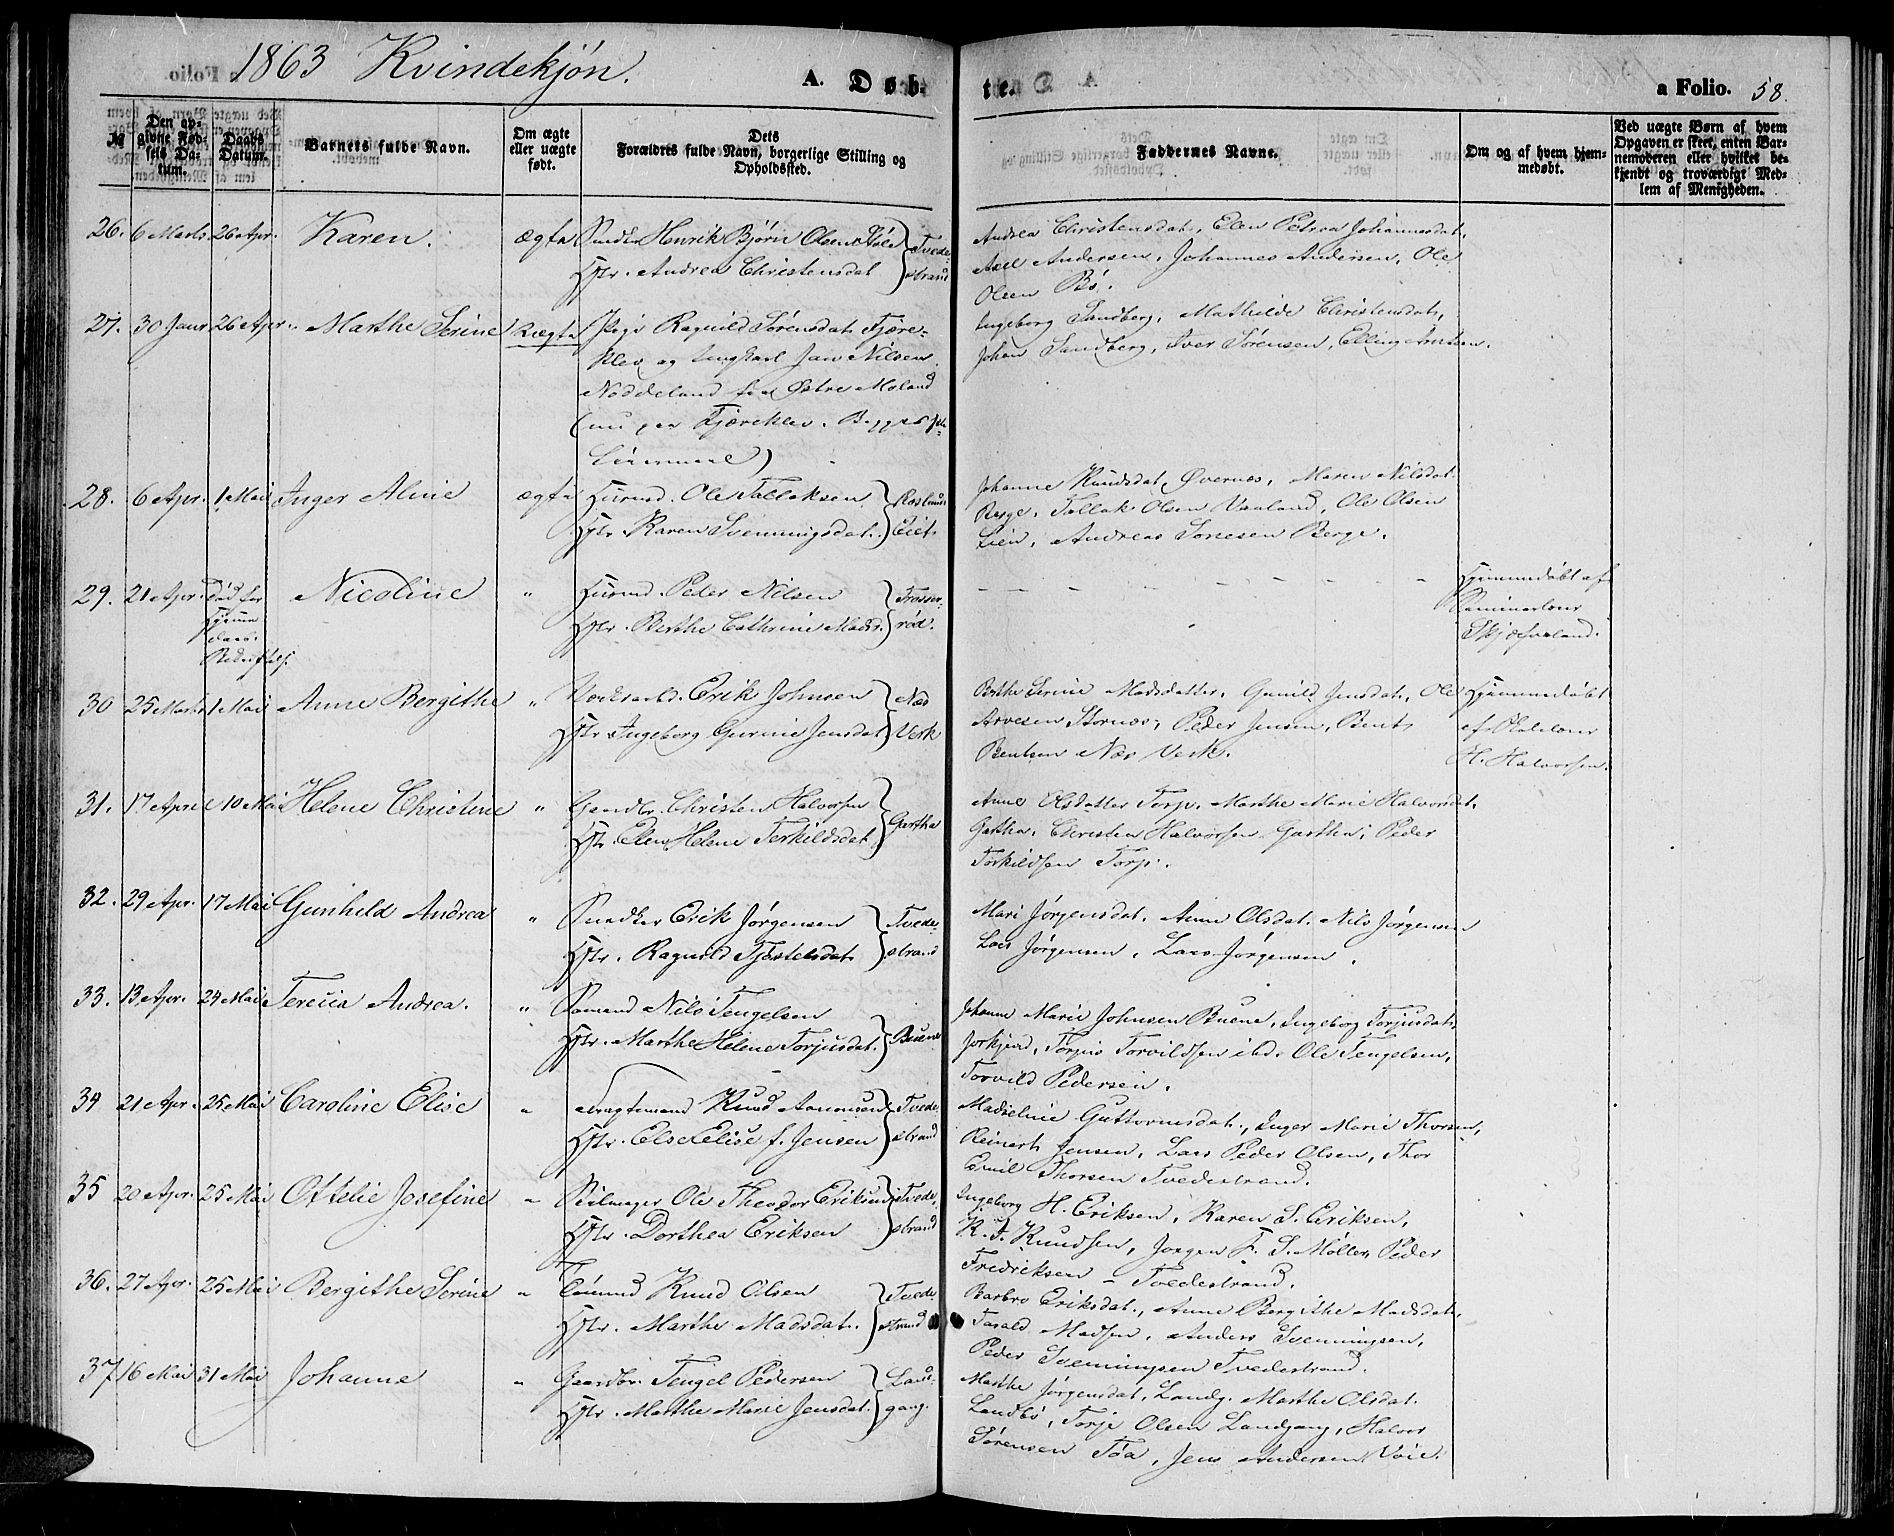 1863 Kvindekjøn.
A. Døb-
te.
a Folio. 58.
№
Den opgivne Fødsels Datum.
Daabs Datum.
Barnets fulde Navn.
Om ægte eller uægte født.
Dets Forældres fulde Navn, borgerlige Stilling og Opholdssted.
Faddernes Navne.
Om og af hvem hjemmedøbt.
Ved uægte Børn af hvem Opgaven er skeet, enten Barnemoderen eller hvilket bekjendt og troværdigt Medlem af Menigheden.
26. 6 Marts 26 Apr. Karen. ægta Snedker Henrik Bjørn Olsen Tvede-
Hstr. Andrea Christensdat strand
Andrea Christensdat., Elen Petrea Johannesdat.
Axel Andersen, Johannes Andersen, Ole
Olsen Bø.
27. 30 Janr 26 Apr. Marthe Serine Uægta Pige Ragnild Sørensdat. Fjære-
klev og Ungkarl Jan Nilsen
Noddeland fra Østre Moland
(nu paa Fjæreklev. Begges
Leiermaal)
Ingeborg Sandberg, Mathilde Christensdat,
Johan Sandberg, Iver Sørensen, Elling
28. 6 Apr. 1 Mai Inger Aline ægta Huusmd. Ole Tallaksen
Hstr. Karen Svenningsdat. Eiet.
Johanne Knudsdat. Øvernæs, Maren Nilsdat.
Berge, Tallak Olsen Vaaland, Ole Olsen
Lien, Andreas Berge.
29. 21 Apr. Død før
Nicoline " Huusmd. Peder Nilsen
Hstr. Berthe Cathrine Madsd. rød.
Hjemmedøbt af
Seminarlærer
30 25 Marts 1 Mai Anne Bergithe " Erik Johnsen
Hstr. Ingeborg Gurine Jensdat Verk
Berthe Serine Madsdatter, Gunild Jensdat, Ole
Arvesen Peder Jensen, Bent
Bentsen Næs Verk.
Hjemmedøbt
af
H. Halvorsen.
31. 17 April 10 Mai Helene Christine " Gaardbr. Christen Halvorsen Gartha
Hstr. Elen Helene Terkildsdat.
Anne Olsdatter Torp, Marthe Marie Halvorsdat.
Gartha, Christen Halvorsen Gartha, Peder
Terkildsen Torp.
32. 29 Apr. 17 Mai Gunhild Andrea " Snedker Erik Jørgensen Tvede-
Hstr. Ragnild Tjøstelsdat. strand
Mari Jørgensdat. Anne Olsdat. Nils Jørgensen
Lars Jørgensen, Lars Jørgensen.
33. 13 Apr. 24 Mai Teresia Andrea. " Sømand Nils Tengelsen
Hstr. Marthe Helene Torjusdat. Buene
Johanne Marie Johnsen Buene, Ingeborg Torjusdat.
Torjus Torvildsen ibd. Ole Tengelsen,
Torvild Pedersen.
34 21 Apr. 25 Mai Caroline Elise " Fragtemand Knud Aanonsen Tvede-
Hstr. Else Elise f. Jensen strand
Madseline Guttormsdat., Inger Marie Thorsen,
Reinert Jensen, Lars Peder Olsen, Thor
Emil Thorsen Tvedestrand.
35 20 Apr. 25 Mai Ottelie Josefine " Seilmager Ole Theodor Eriksen Tvede-
Hstr. Dorthea Eriksen strand
Ingeborg H. Eriksen, Karen S. Eriksen,
K. T. Knudsen, Jørgen F. S. Møller, Peder
Fredriksen - Tvedestrand.
36. 27 Apr. 25 Mai Bergithe Serine " Tømmd Knud Olsen Tvede-
Hstr. Marthe Madsdat. strand
Barbro Eriksdat., Anne Bergithe Madsdat.
Tarald Madsen, Anders Svenningsen,
Peder Svenningsen Tvedestrand.
37 16 Mai 31 Mai Johanne " Gaardbr. Tengel Pedersen Land-
Hstr. Marthe Marie Jensdat. gang.
Marthe Jørgensdat. Landg. Marthe Olsdat.
Landbø, Torje Olsen Landgang, Halvor
Sørensen Tøa, Jens Andersen Voie.